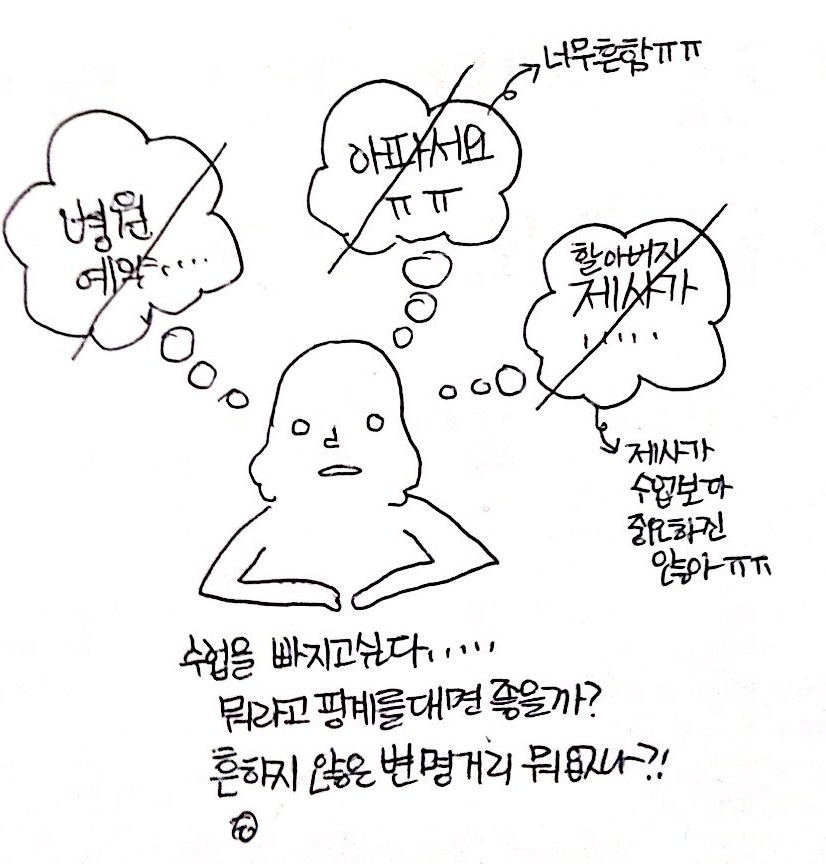 너무흔함ㅠㅠ
아파서요
ㅠㅠ
병원
예약.....
할아버지
제사가
.....
제사가
수업보다
중요하진
않아ㅠㅠ
수업을 빠지고싶다.....
뭐라고 핑계를대면 좋을까?
흔하지 않은 변명거리 뭐없나?!